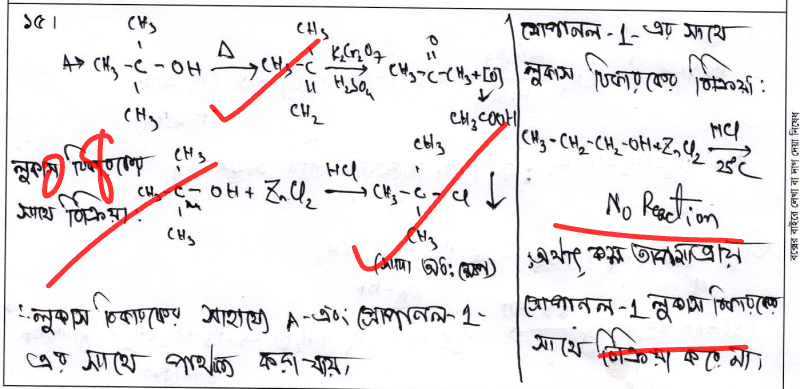 ১৫।
CH₃
A→ CH₃-C-OH
CH₃
Δ
CH₃
CH₃-C
CH₂
K₂Cr₂O₇
H₂SO₄
O
CH₃-C-CH₃+[O]
CH₃COOH
লুকাস বিকারকের
সাথে বিক্রিয়া:
০৪
CH₃
CH₃-C-OH + ZnCl₂
CH₃
HCl
CH₃
CH₃-C-Cl ↓
CH₃
(সাদা অধঃক্ষেপ)
∴ লুকাস বিকারকের সাহায্যে A-এবং প্রোপানল-1-
এর সাথে পার্থক্য করা যায়।
প্রোপানল-1-এর সাথে
লুকাস বিকারকের বিক্রিয়া:
CH₃-CH₂-CH₂-OH+ZnCl₂
HCl
25°C
No Reaction
অর্থাৎ কম তাপমাত্রায়
প্রোপানল-1 লুকাস বিকারকের
সাথে বিক্রিয়া করে না।
বক্সের বাইরে লেখা বা দাগ দেয়া নিষেধ